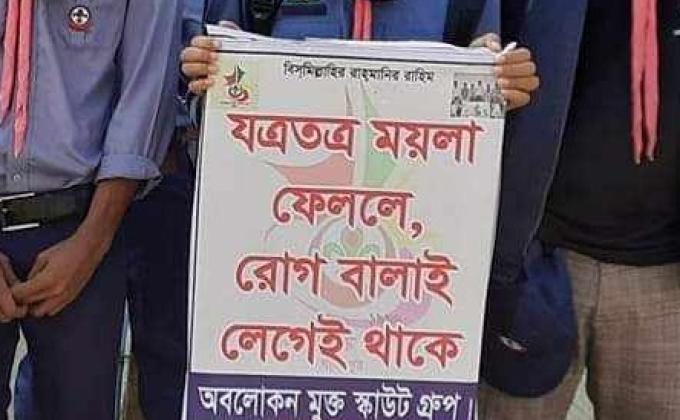 বিসমিল্লাহির রাহমানির রাহিম
যত্রতত্র ময়লা
ফেললে,
রোগ বালাই
লেগেই থাকে
অবলোকন মুক্ত স্কাউট গ্রুপ।